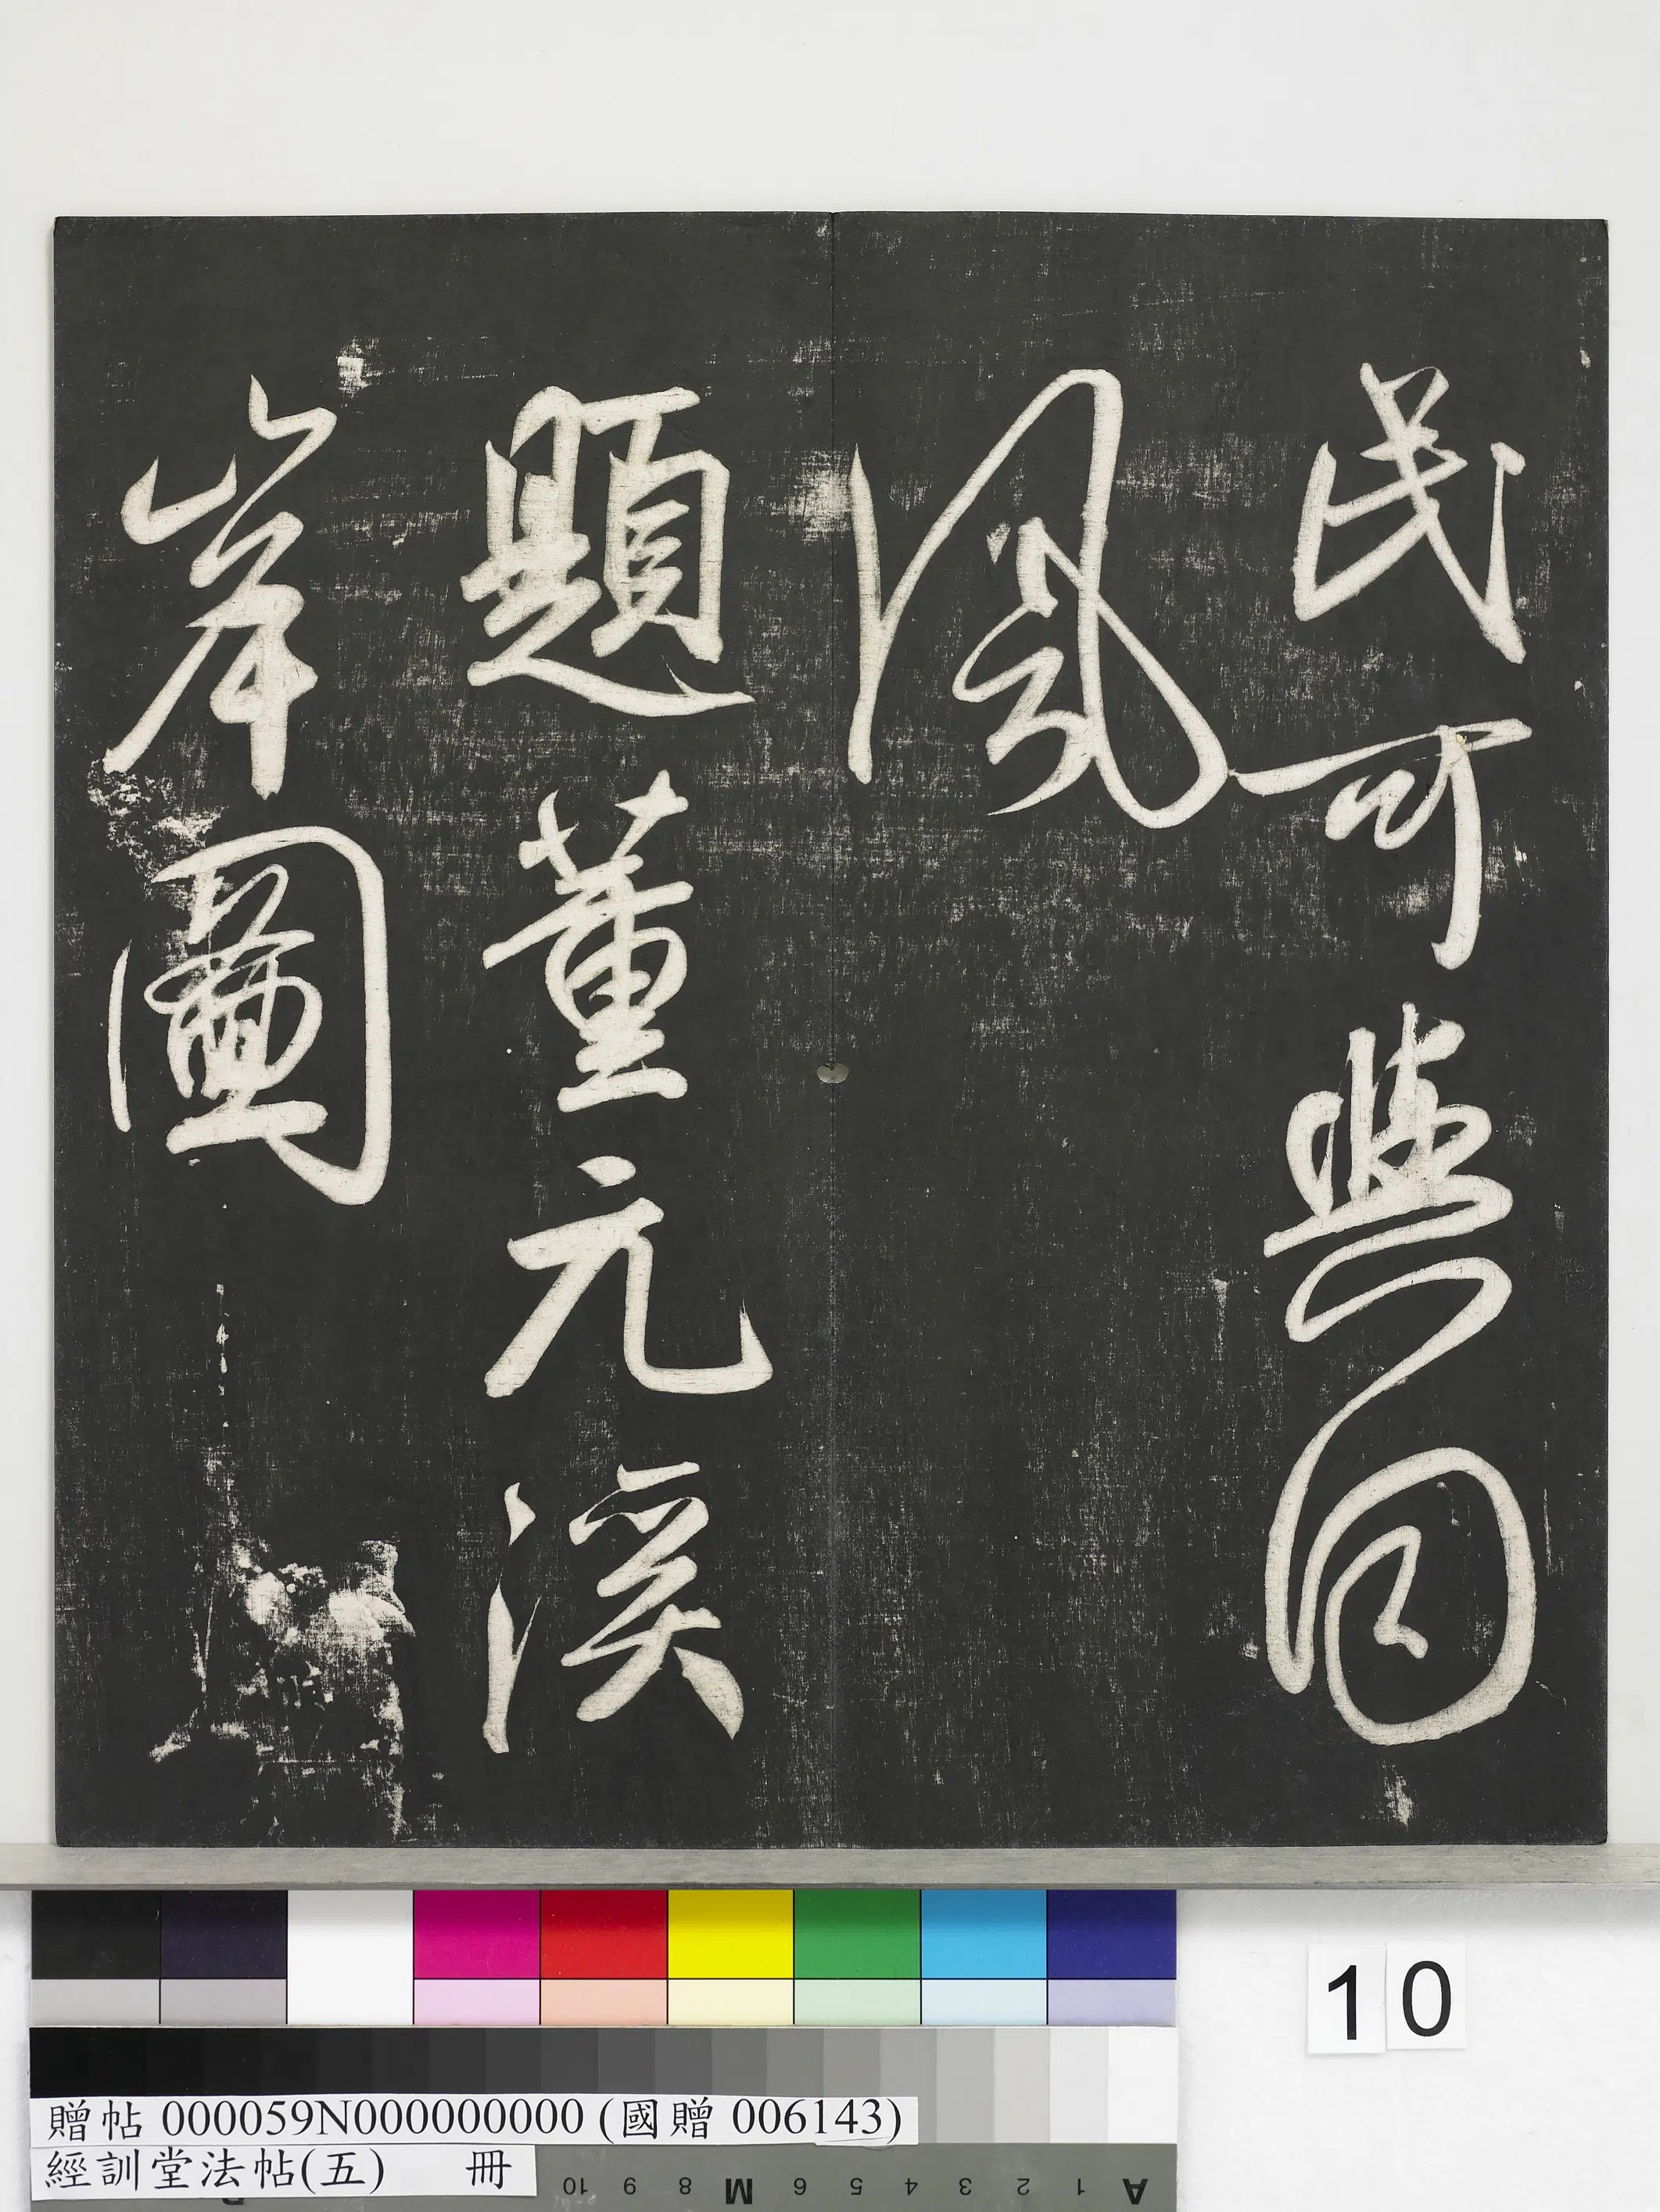 民可與同
風
題董元溪
岸圖
10
贈帖 000059N000000000 (國贈 006143)
經訓堂法帖(五) 冊
10 9 8 M 6 5 4 3 2 1 A